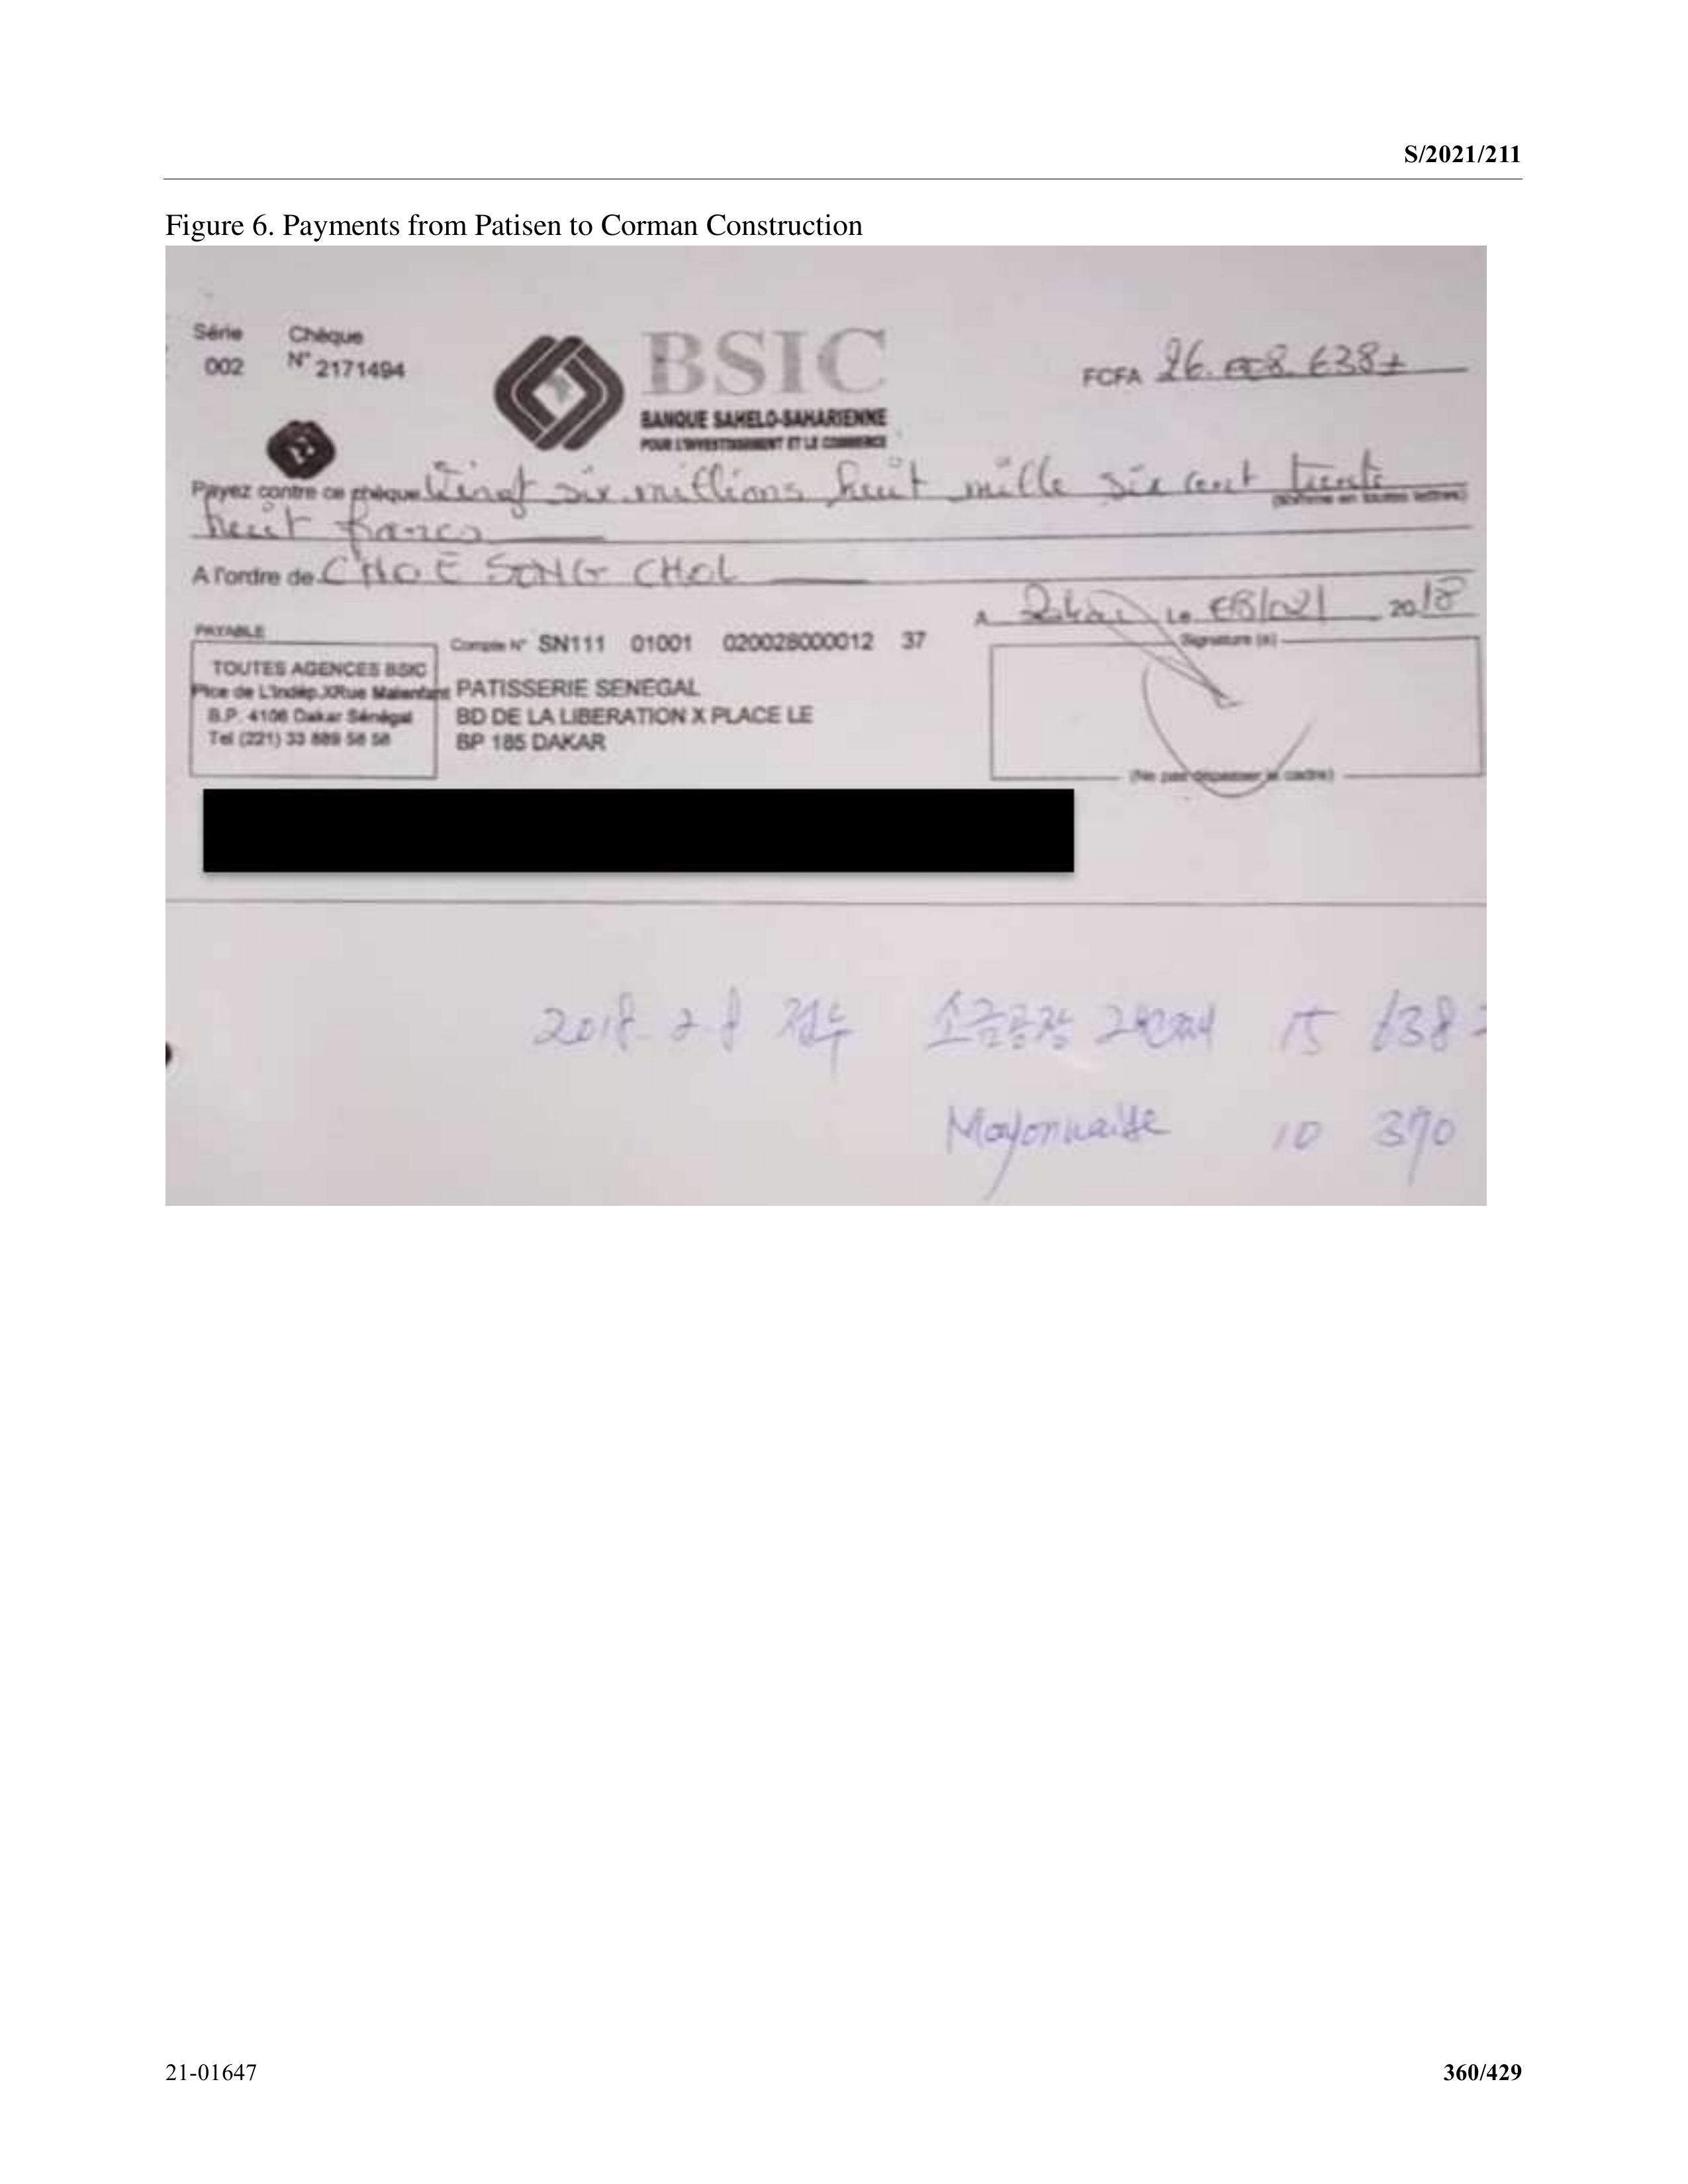 S/2021/211
Figure 6. Payments from Patisen to Corman Construction
Série Chèque
002 N° 2171494
BSIC
BANQUE SAHELO-SAHARIENNE
POUR L'INVESTISSEMENT ET LE COMMERCE
FCFA 26.008.638
Payez contre ce chèque Vingt six millions huit mille six cent trente
(Somme en toutes lettres)
huit francs
A l'ordre de CHOE SONG CHOL
A Le 08/02/ 2018
PAYABLE
TOUTES AGENCES BSIC
Place de L'Indép.XRue Malenfant
B.P. 4106 Dakar Sénégal
Tel (221) 33 889 58 58
Compte N° SN111 01001 020028000012 37
PATISSERIE SENEGAL
BD DE LA LIBERATION X PLACE LE
BP 185 DAKAR
Signature (s)
(Ne pas dépasser le cadre)
2018-2-8 접수 소금공장 2번째 15 638
Mayonnaise 10 370
21-01647
360/429